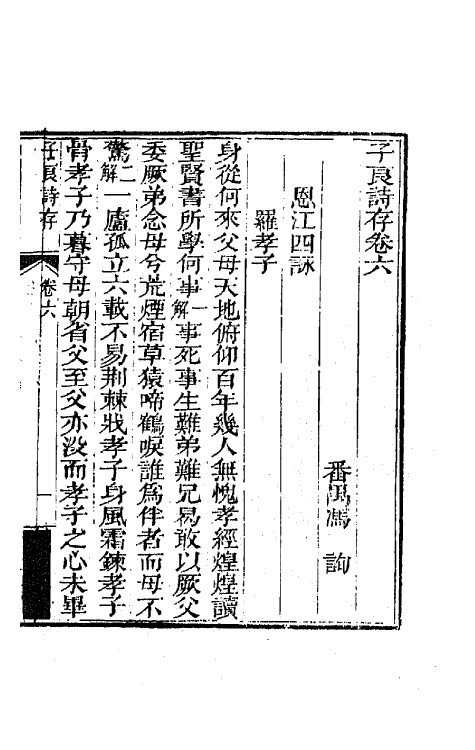 子良詩存卷六
番禺馮　詢
恩江四詠
羅孝子
身從何來父母天地俯仰百年幾人無愧孝經煌煌讀
聖賢書所學何事解一事死事生難弟難兄易敢以厥父
委厥弟念母兮荒煙宿草猿啼鶴唳誰爲伴者而母不
驚解二一廬孤立六載不易荆棘戕孝子身風霜鍊孝子
骨孝子乃暮守母朝省父至父亦没而孝子之心未畢
子良詩存　卷六　一